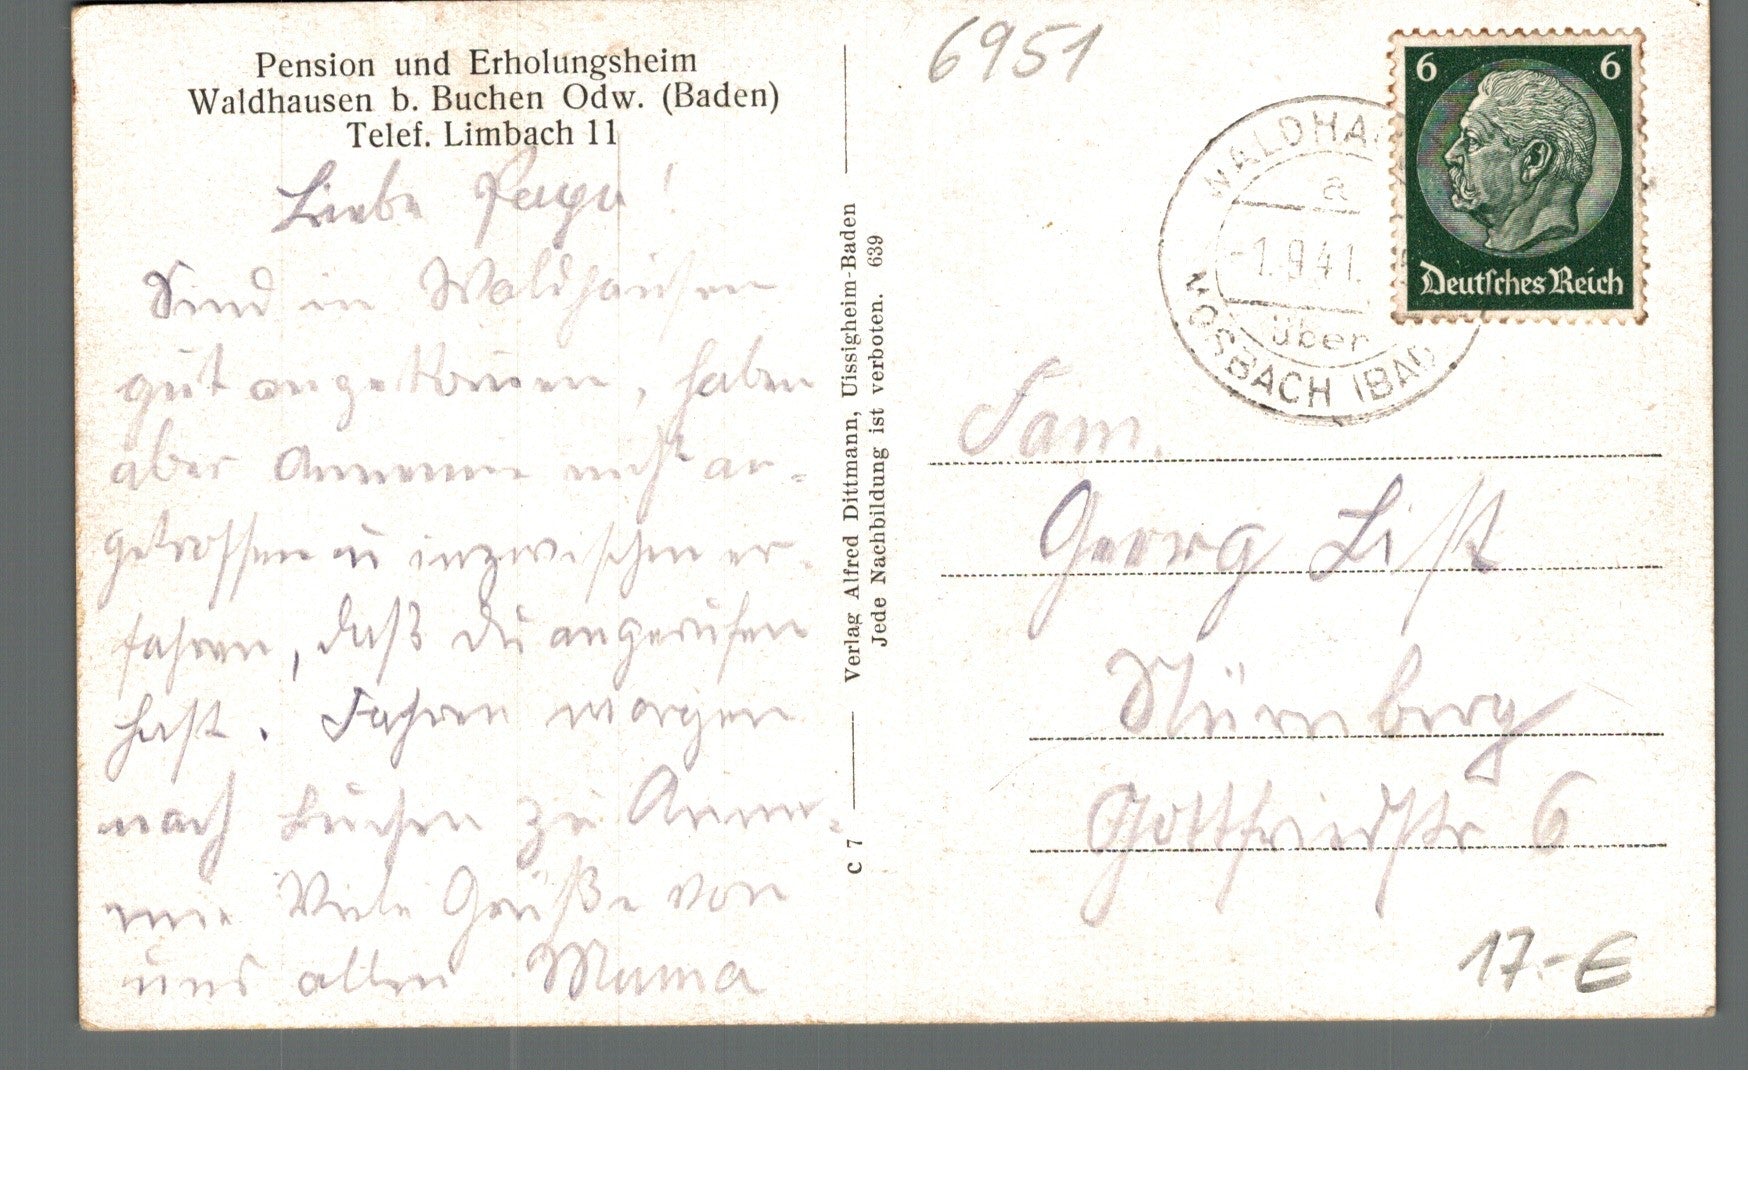 Pension und Erholungsheim
Waldhausen b. Buchen Odw. (Baden)
Telef. Limbach 11
Liebe Papa!
Sind in Waldhausen
gut angekommen, haben
aber Annemie nicht an-
getroffen u inzwischen er-
fahren, daß du angerufen
hast. Fahren morgen
nach Buchen zu Anne-
mie Viele Grüße von
uns allen Mama
C 7 Verlag Alfred Dittmann, Uissigheim-Baden
Jede Nachbildung ist verboten. 639
6951
6 6
Deutsches Reich
WALDHA
a
-1.9.41.
über
MOSBACH (BAD
Fam.
Georg List
Nürnberg
Gottfriedstr 6
17.-€